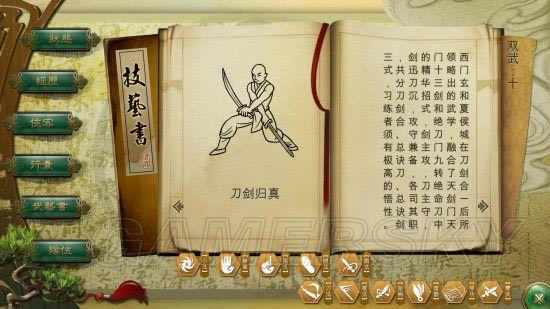 狀態
經歷
俠客
行囊
武藝書
隊伍
技藝書
刀剑归真
双武
十
西门玄和夏侯城在刀剑合一后所
领略出的武学，融合了天剑门天
门十三剑和绝刀门九转绝命刀中
的精华招式，剑主攻，刀主守，
剑迅刀沉，攻守兼备，各司其职
，共分刀剑合、总诀刀、总诀剑
三式，习练者须有极高的悟性。
GAMERSKY